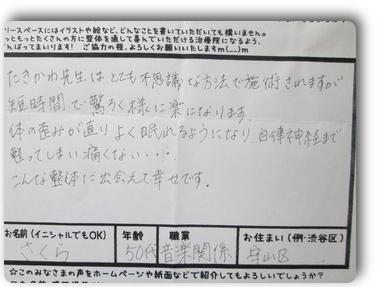 リースペースにはイラストや絵など、どんなことを書いていただいても構いません。
もっともっとたくさんの方に整体を通して喜んでいただける治療院になるよう、
がんばってまいります! ご協力の程、よろしくお願いいたしますm(__)m
たきかわ先生はとても不思議な方法で施術されますが
短時間で驚ろく様に楽になります.
体の歪みが直りよく眠れるようになり、自律神経まで
整ってしまい痛くない・・・・
こんな整体に出会えて幸せです。
お名前(イニシャルでもOK)
年齢
職業
お住まい(例:渋谷区)
さくら
50代
音楽関係
守山区
☆このみなさまの声をホームページや紙面などで紹介してもよろしいでしょうか?